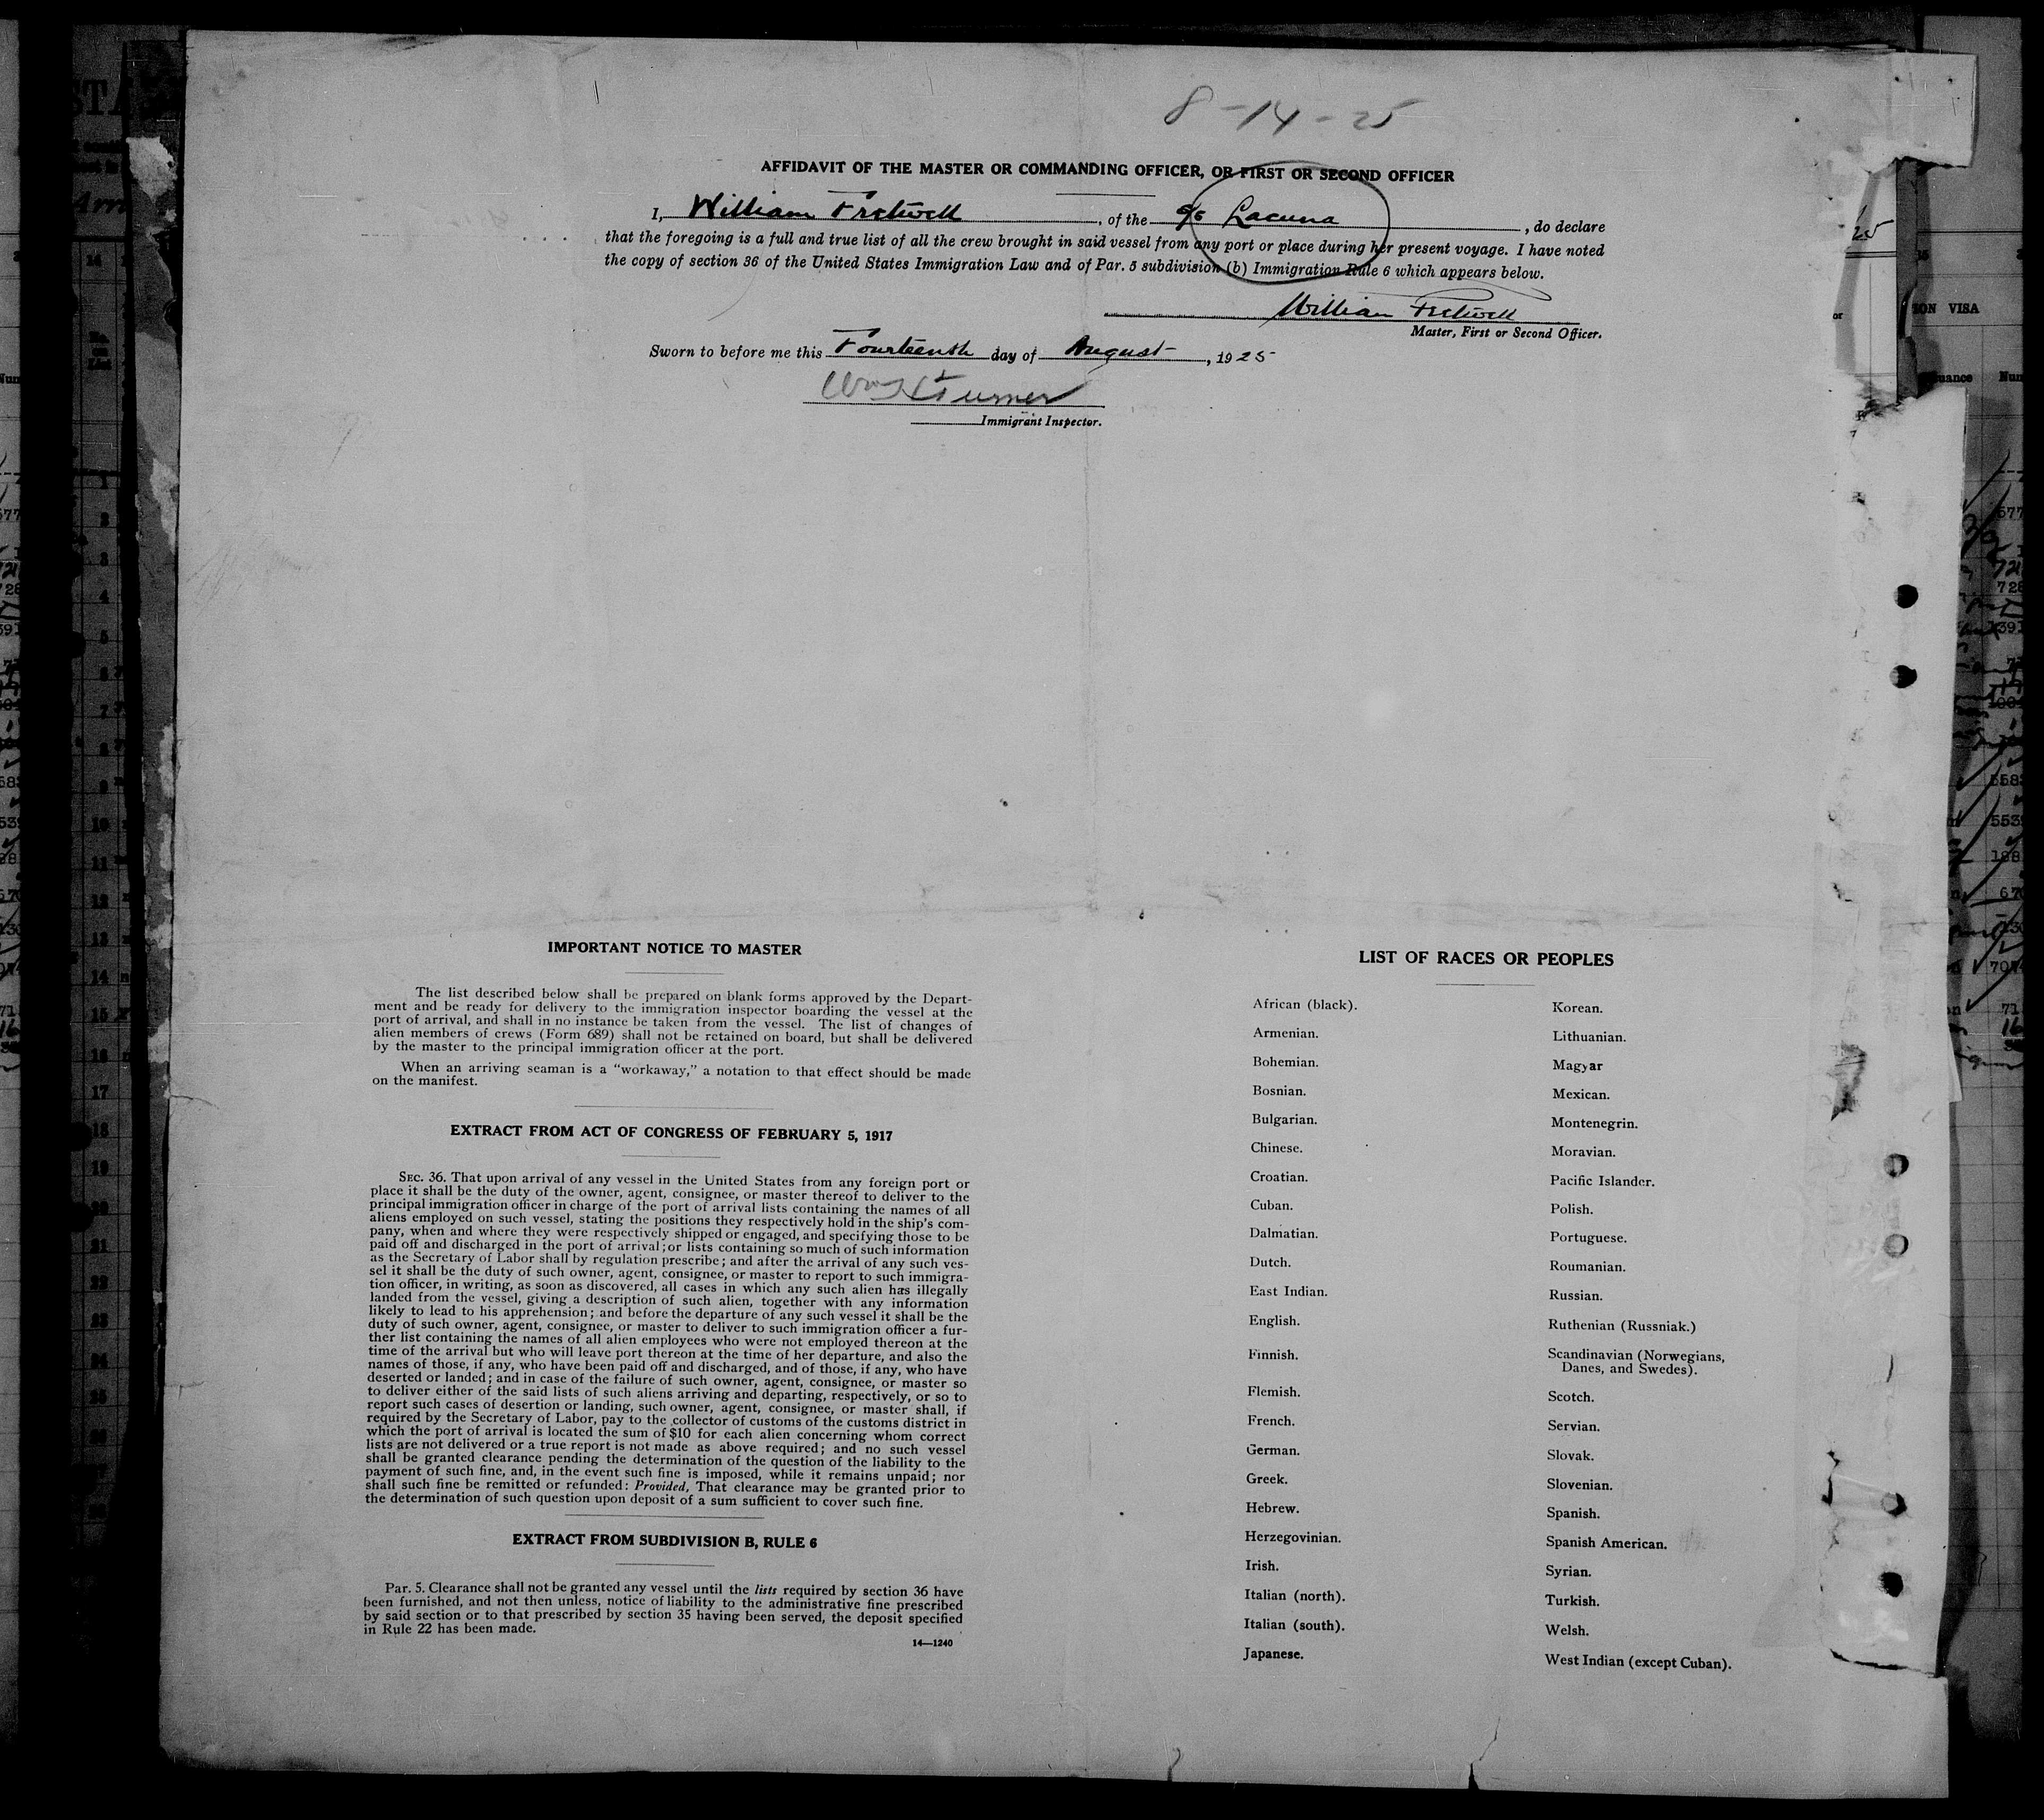 8-14-25
AFFIDAVIT OF THE MASTER OR COMMANDING OFFICER, OR FIRST OR SECOND OFFICER
I, William Fretwell, of the S/S Lacuna, do declare
that the foregoing is a full and true list of all the crew brought in said vessel from any port or place during her present voyage. I have noted
the copy of section 36 of the United States Immigration Law and of Par. 5 subdivision (b) Immigration Rule 6 which appears below.
William Fretwell
Master, First or Second Officer.
Sworn to before me this Fourteenth day of August, 1925
Turner
Immigrant Inspector.
IMPORTANT NOTICE TO MASTER
The list described below shall be prepared on blank forms approved by the Depart-
ment and be ready for delivery to the immigration inspector boarding the vessel at the
port of arrival, and shall in no instance be taken from the vessel. The list of changes of
alien members of crews (Form 689) shall not be retained on board, but shall be delivered
by the master to the principal immigration officer at the port.
When an arriving seaman is a "workaway," a notation to that effect should be made
on the manifest.
EXTRACT FROM ACT OF CONGRESS OF FEBRUARY 5, 1917
SEC. 36. That upon arrival of any vessel in the United States from any foreign port or
place it shall be the duty of the owner, agent, consignee, or master thereof to deliver to the
principal immigration officer in charge of the port of arrival lists containing the names of all
aliens employed on such vessel, stating the positions they respectively hold in the ship's com-
pany, when and where they were respectively shipped or engaged, and specifying those to be
paid off and discharged in the port of arrival; or lists containing so much of such information
as the Secretary of Labor shall by regulation prescribe; and after the arrival of any such ves-
sel it shall be the duty of such owner, agent, consignee, or master to report to such immigra-
tion officer, in writing, as soon as discovered, all cases in which any such alien has illegally
landed from the vessel, giving a description of such alien, together with any information
likely to lead to his apprehension; and before the departure of any such vessel it shall be the
duty of such owner, agent, consignee, or master to deliver to such immigration officer a fur-
ther list containing the names of all alien employees who were not employed thereon at the
time of the arrival but who will leave port thereon at the time of her departure, and also the
names of those, if any, who have been paid off and discharged, and of those, if any, who have
deserted or landed; and in case of the failure of such owner, agent, consignee, or master so
to deliver either of the said lists of such aliens arriving and departing, respectively, or so to
report such cases of desertion or landing, such owner, agent, consignee, or master shall, if
required by the Secretary of Labor, pay to the collector of customs of the customs district in
which the port of arrival is located the sum of $10 for each alien concerning whom correct
lists are not delivered or a true report is not made as above required; and no such vessel
shall be granted clearance pending the determination of the question of the liability to the
payment of such fine, and, in the event such fine is imposed, while it remains unpaid; nor
shall such fine be remitted or refunded: Provided, That clearance may be granted prior to
the determination of such question upon deposit of a sum sufficient to cover such fine.
EXTRACT FROM SUBDIVISION B, RULE 6
Par. 5. Clearance shall not be granted any vessel until the lists required by section 36 have
been furnished, and not then unless, notice of liability to the administrative fine prescribed
by said section or to that prescribed by section 35 having been served, the deposit specified
in Rule 22 has been made.
14—1240
LIST OF RACES OR PEOPLES
African (black).
Armenian.
Bohemian.
Bosnian.
Bulgarian.
Chinese.
Croatian.
Cuban.
Dalmatian.
Dutch.
East Indian.
English.
Finnish.
Flemish.
French.
German.
Greek.
Hebrew.
Herzegovinian.
Irish.
Italian (north).
Italian (south).
Japanese.
Korean.
Lithuanian.
Magyar
Mexican.
Montenegrin.
Moravian.
Pacific Islander.
Polish.
Portuguese.
Roumanian.
Russian.
Ruthenian (Russniak.)
Scandinavian (Norwegians,
Danes, and Swedes).
Scotch.
Servian.
Slovak.
Slovenian.
Spanish.
Spanish American.
Syrian.
Turkish.
Welsh.
West Indian (except Cuban).